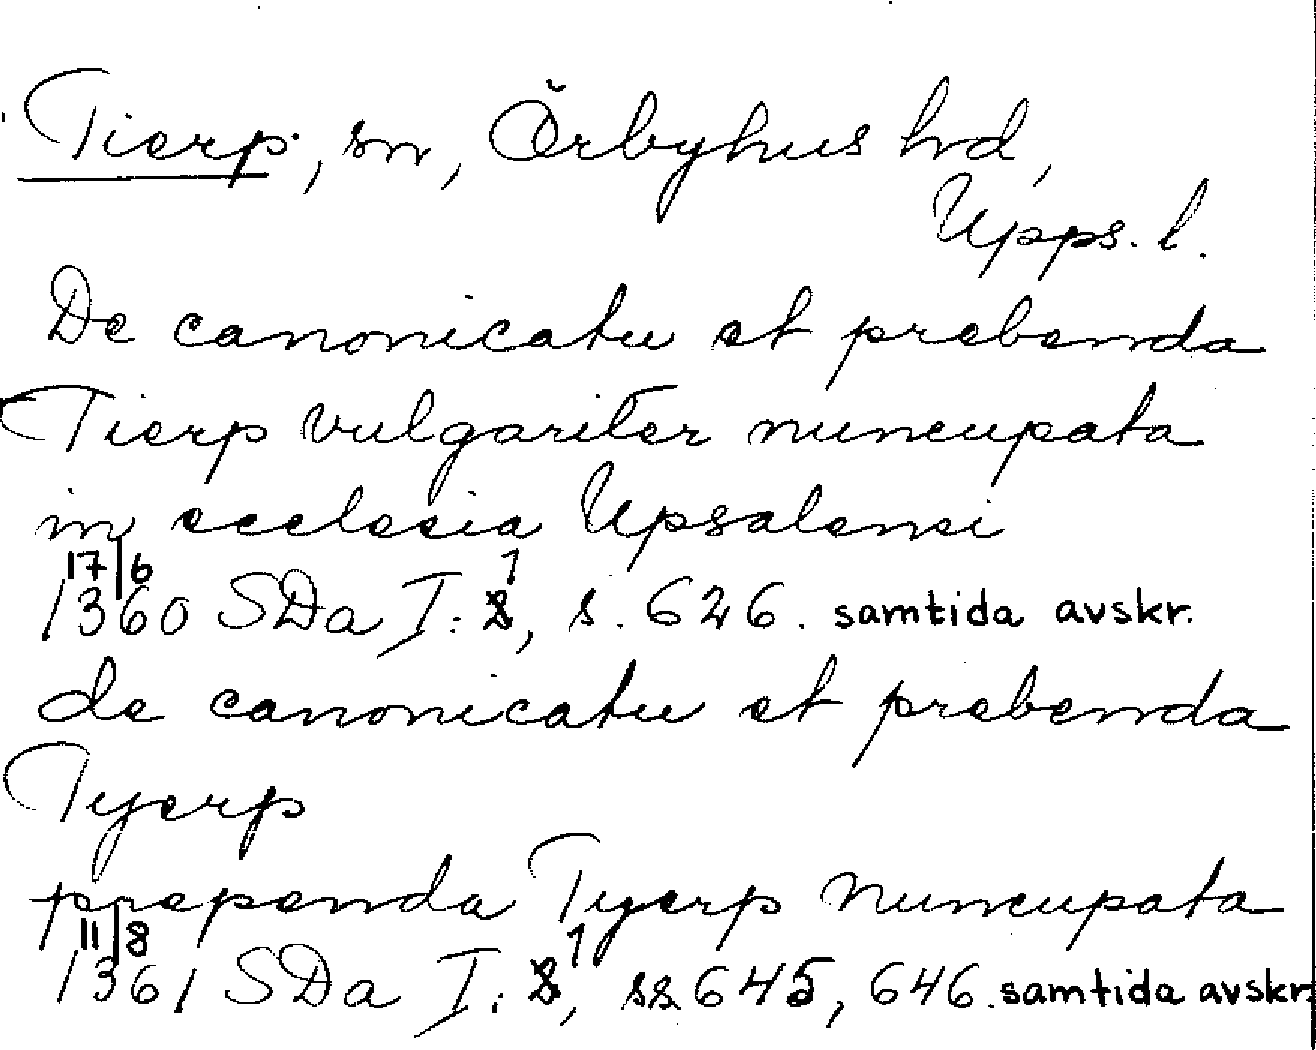 Tierp, sn, Örbyhus hd,
Upps. l.
De canonicatu et prebenda
Tierp vulgariter nuncupata
in ecclesia Upsalensi
17/6
1360 SDa I: 1, s. 626. samtida avskr.
de canonicatu et prebenda
Tyerp
prependa Tyerp nuncupata
11/8
1361 SDa I: 1, ss 645, 646. samtida avskr.